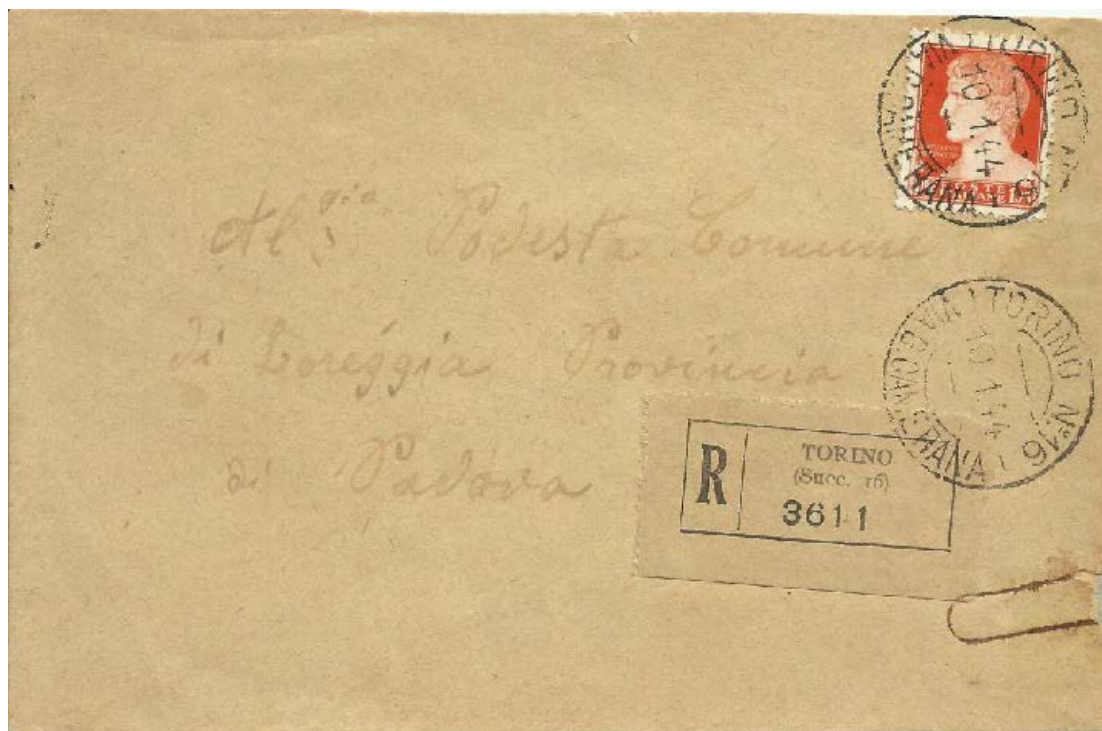 TORINO
10.1.44
POSTE
gia
Al Podesta Comune
di Loreggia Provincia
di Padova
TORINO Nº16
10.1.44
R
TORINO
(Succ. 16)
3611